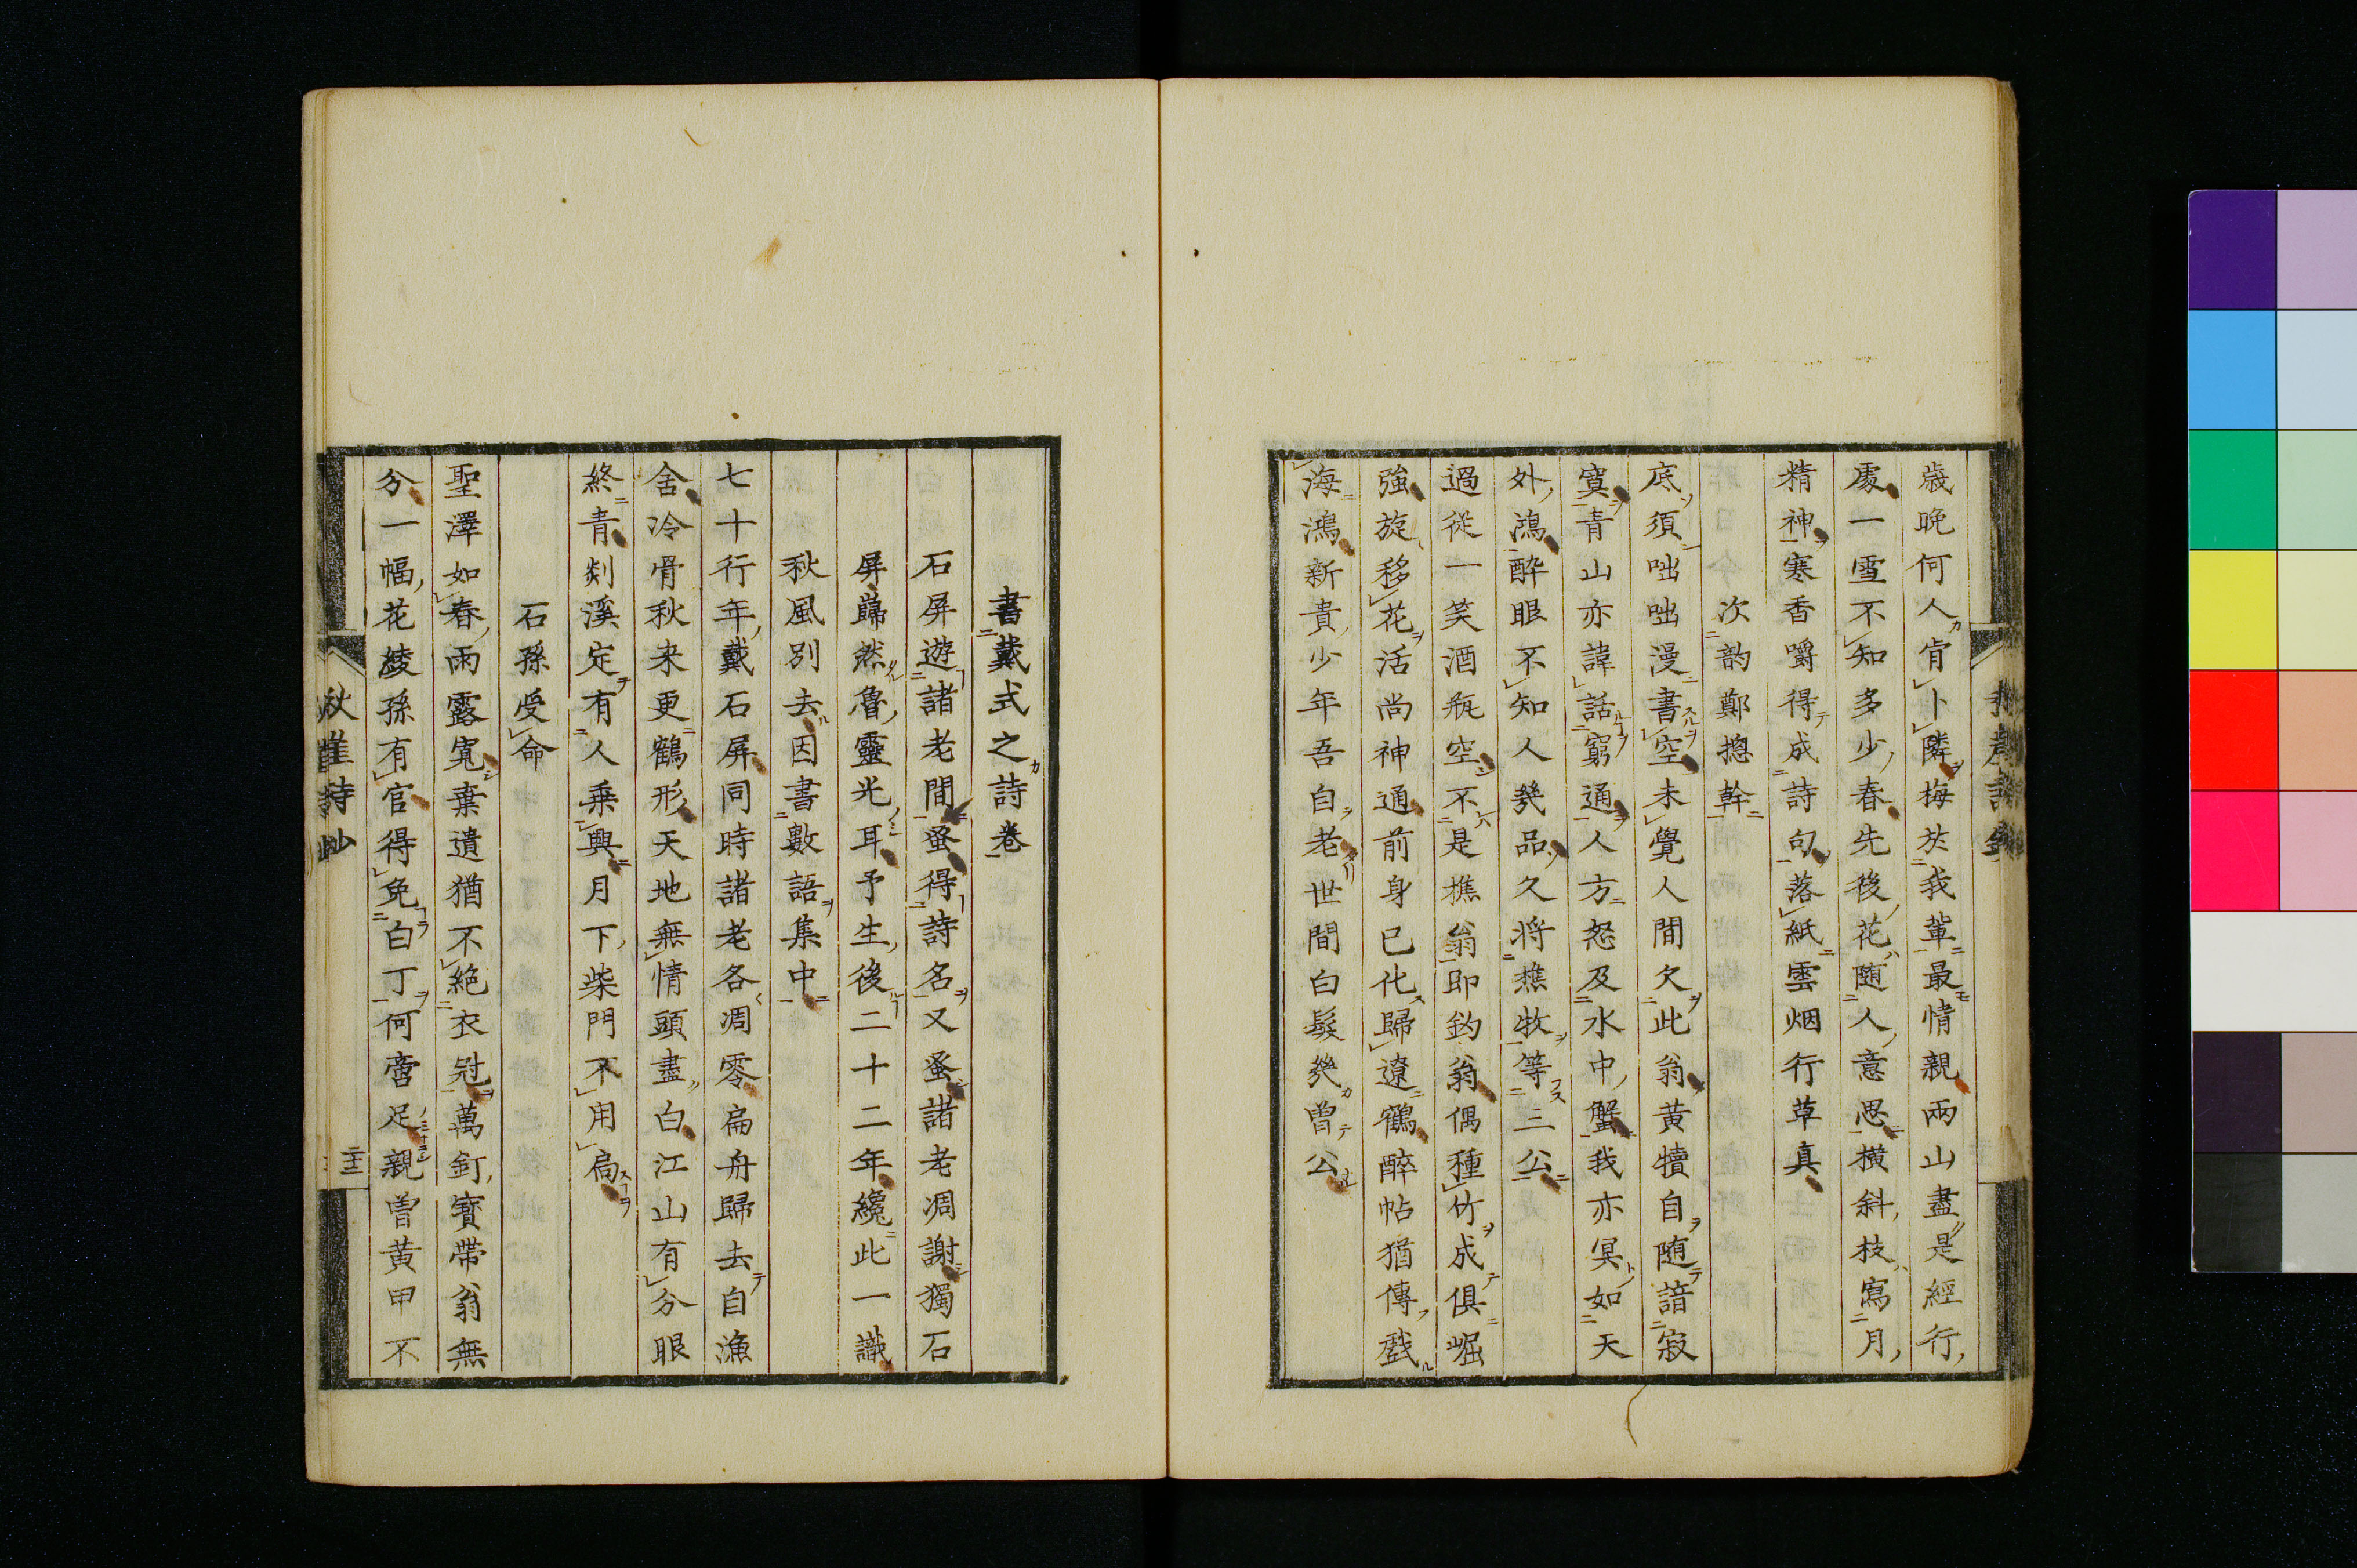 歳晩何人肯卜隣梅於我輩最情親兩山盡是經行
處一雪不知多少春先後花随人意思橫斜枝寫月
精神寒香嚼得成詩句落紙雲烟行草真
次韵鄭摠幹
底須咄咄漫書空未覺人間欠此翁黄犢自随諳寂
寞青山亦諱話窮通人方怒及水中蟹我亦冥如天
外鴻醉眼不知人㡬品久将樵牧等三公
過從一笑酒瓶空不是樵翁即釣翁偶種竹成俱崛
強旋移花活尚神通前身已化歸遼鶴醉帖猶傳戲
海鴻新貴少年吾自老世間白髮㡬曽公
書戴式之詩卷
石屏遊諸老間蚤得詩名又蚤諸老凋謝獨石
屏巋然魯靈光耳予生後二十二年纔此一識
秋風別去因書數語集中
七十行年戴石屏同時諸老各凋零扁舟歸去自漁
舍冷骨秋来更鶴形天地無情頭盡白江山有分眼
終青剡溪定有人乗興月下柴門不用扃
石孫受命
聖澤如春雨露寬棄遺猶不絕衣冠萬釘寳帶翁無
分一幅花綾孫有官得免白丁何啻足親曽黄甲不
秋崖詩鈔
二十三